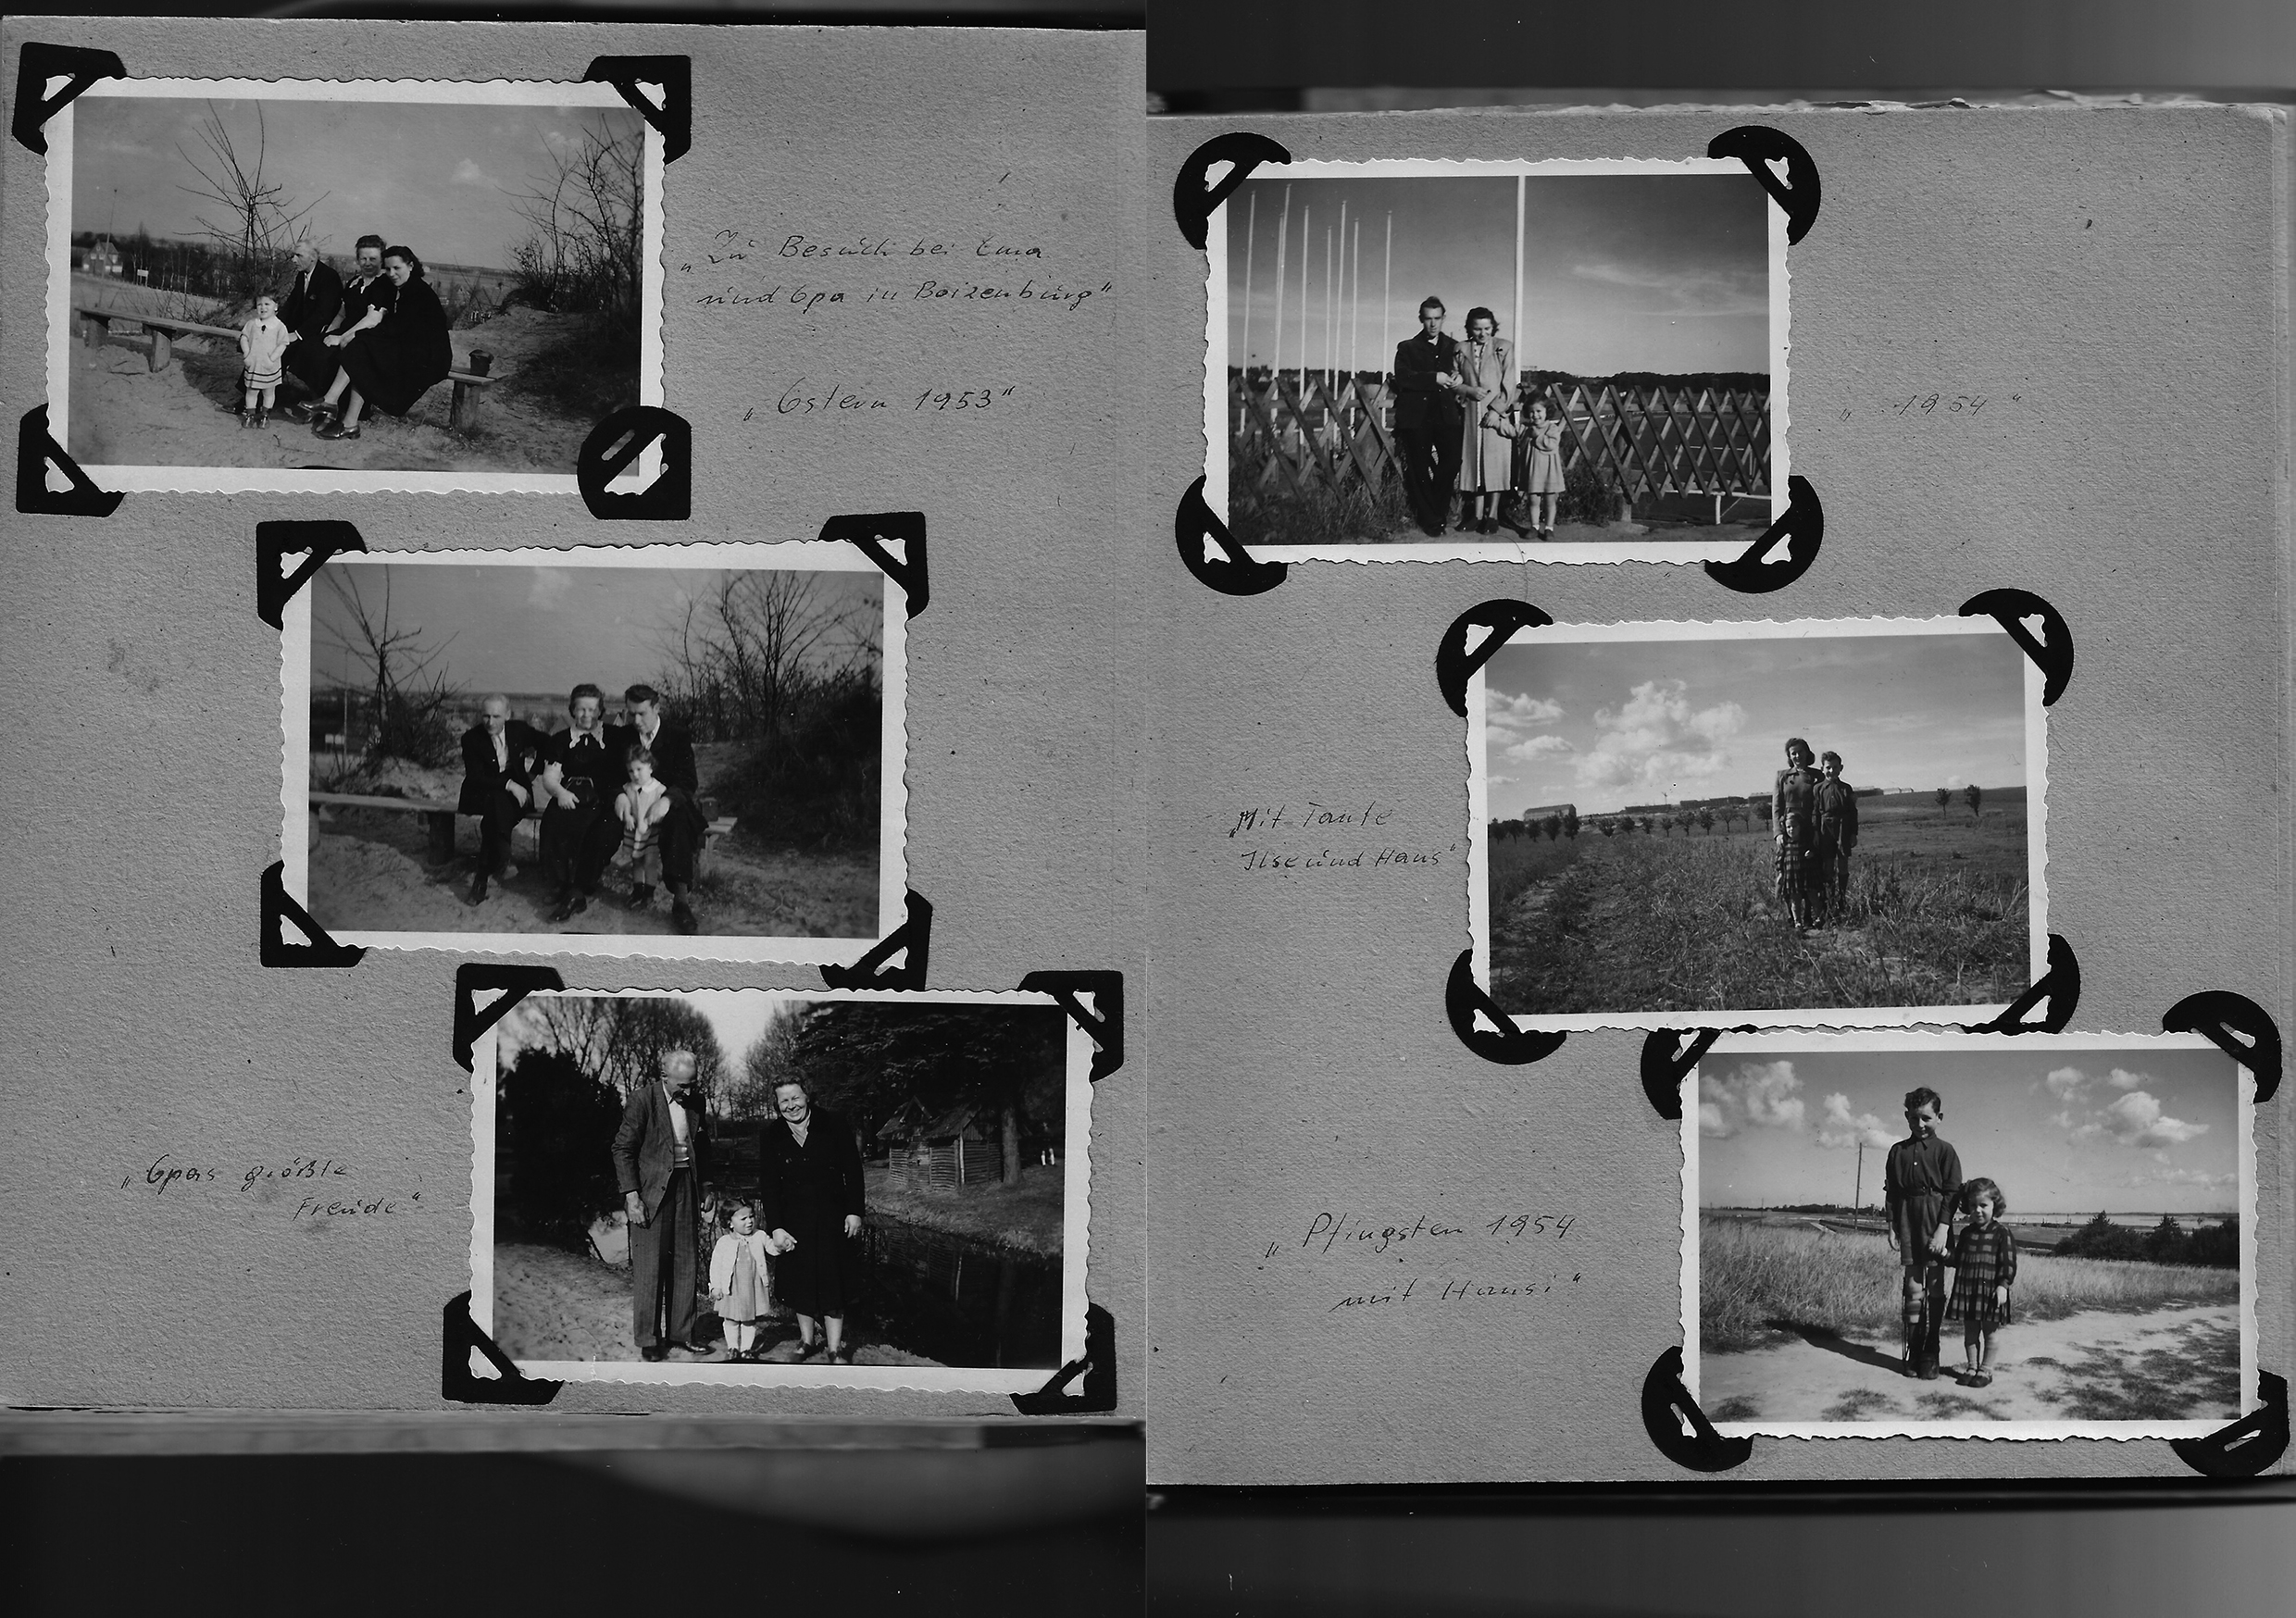 „Zu Besuch bei Oma
und Opa in Boizenburg“
„Ostern 1953“
„Opas größte
Freude“
„1954“
„Mit Tante
Ilse und Hans“
„Pfingsten 1954
mit Hansi“